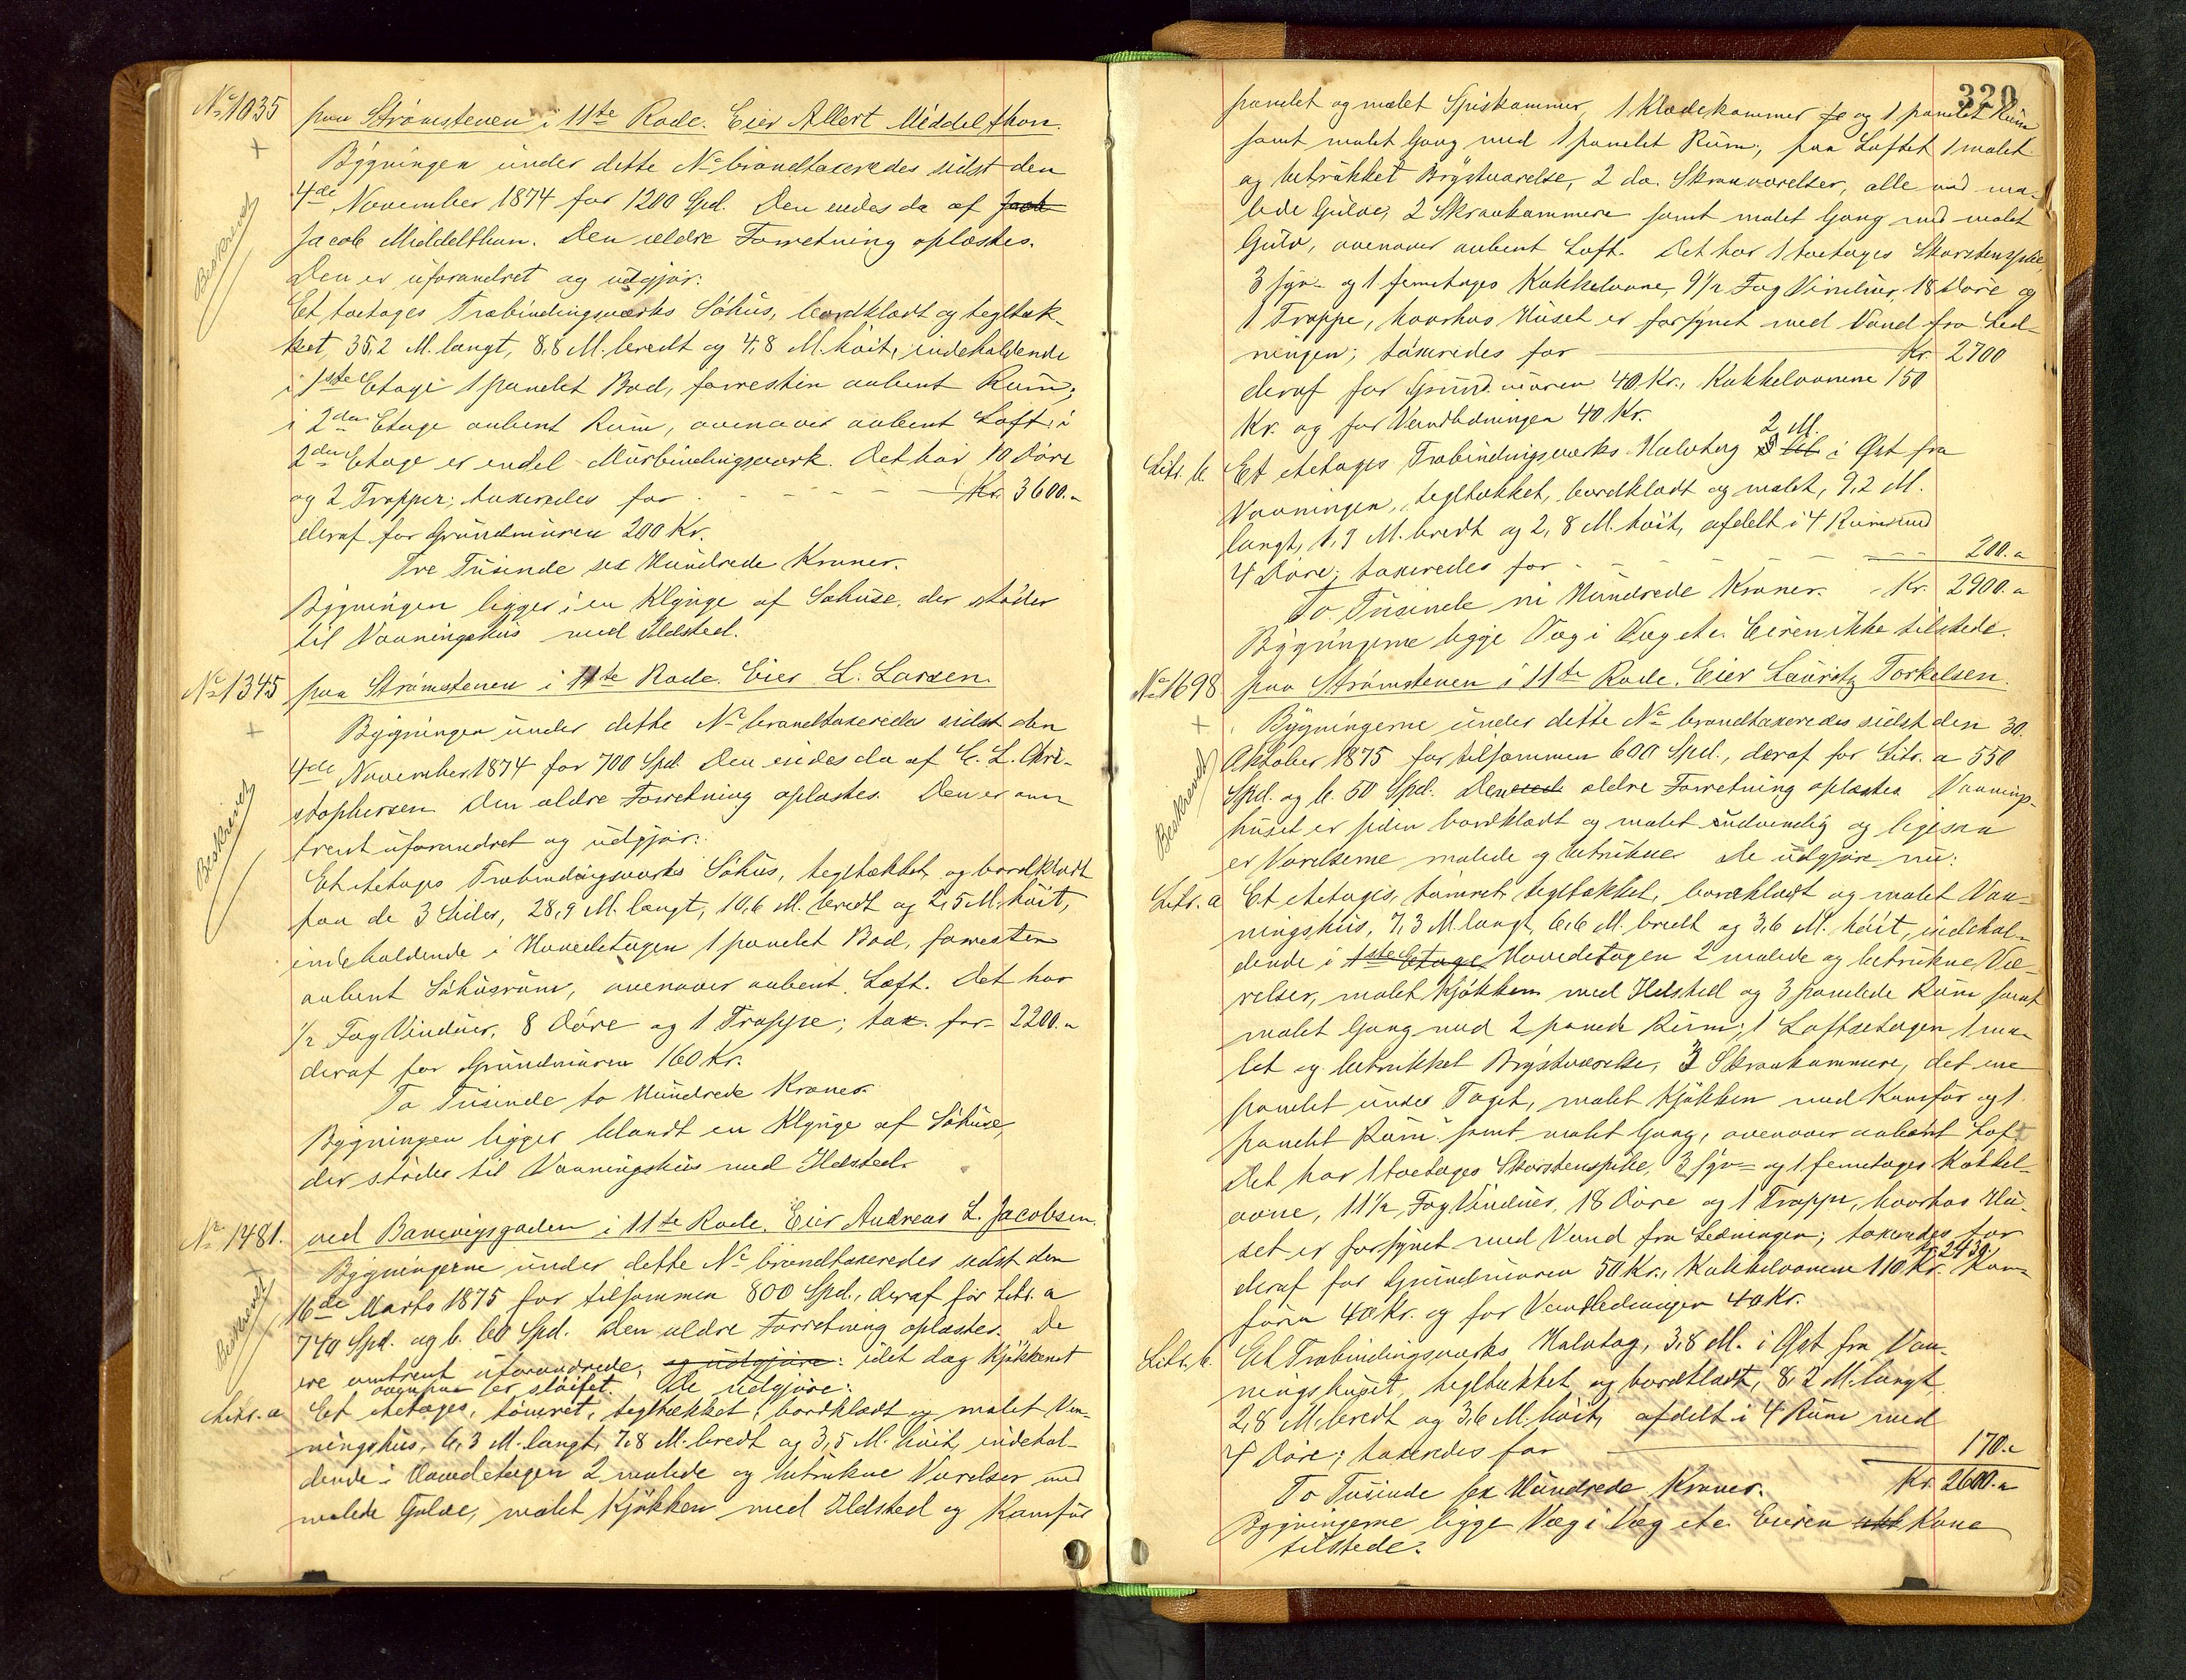 No 1035 paa Strömstenen i 11te Rode. Eier Allert Middelthon.
Bygningen under dette No brandtaxeredes sidst den
4de November 1874 for 1200 Spd. Den eiedes da af Jaob
Jacob Middelthon. Den ældre Forretning oplæstes.
Den er uforandret og udgjør:
Et toetages Træbindingsværks Söhus, bordklædt og tegltæk-
ket, 35,2 M. langt, 8,8 M. bredt og 4,8 M. höit, indeholdende
i 1ste Etage 1 panelet Bod, forresten aabent Rum;
i 2den Etage aabent Rum, ovenover aabent Loft; i
2den Etage er endel Murbindingsværk. Det har 10 Döre
og 2 Trapper; taxeredes for - - - - - Kr. 3600.„
deraf for Grundmuren 200 Kr.
Tre Tusinde sex Hundrede Kroner.
Bygningen ligger i en Klynge af Söhuse, der støder
til Vaaningshus med Ildsted.
Beskrevet
No 1345 paa Strömstenen i 11te Rode. Eier L. Larsen.
Bygningen under dette No brandtaxeredes sidst den
4de November 1874 for 700 Spd. Den eiedes da af C. L. Chri-
stophersen. Den ældre Forretning oplæstes. Den er om-
trent uforandret og udgjør:
Et etetages Træbindingsværks Söhus, tegltækket og bordklædt
paa de 3 Sider, 28,9 M. langt, 10,6 M. bredt og 2,5 M. höit,
indeholdende i Hovedetagen 1 panelet Bod, forresten
aabent Söhusrum, ovenover aabent Loft. Det har
1/2 Fag Vinduer, 8 Döre og 1 Trappe; tax. for 2200.„
deraf for Grundmuren 160 Kr.
To Tusinde to Hundrede Kroner.
Bygningen ligger blandt en Klynge af Söhuse,
der støder til Vaaningshus med Ildsted.
Beskrevet
No 1481. ved Banevigsgaden i 11te Rode. Eier Andreas L. Jacobsen.
Bygningerne under dette No brandtaxeredes sidst den
16de Marts 1875 for tilsammen 800 Spd., deraf for Litr. a
740 Spd. og b. 60 Spd. Den ældre Forretning oplæstes. De
ere omtrent uforandrede, og udgjøre: idet dog Kjökkenet
ovenpaa er slöifet. De udgjøre:
Beskrevet
Litr. a Et etetages, tömret, tegltækket, bordklædt og malet Vaa-
ningshus, 6,3 M. langt, 7,8 M. bredt og 3,5 M. höit, indehol-
dende i Hovedetagen 2 malede og betrukne Værelser med
malede Gulve, malet Kjökken med Ildsted og Komfur
320
panelet og malet Spiskammer, 1 Klædekammer og 1 panelet Rum
samt malet Gang med 1 panelet Rum; paa Loftet 1 malet
og betrukket Brystværelse, 2 do. Skraaværelser, alle med ma-
lede Gulve, 2 Skraakammere samt malet Gang med malet
Gulv, ovenover aabent Loft. Det har 1 toetages Skorstenspibe,
3 fyr- og 1 femetages Kakkelovne, 9 1/2 Fag Vinduer, 18 Döre og
1 Trappe, hvorhos Huset er forsynet med Vand fra Led-
ningen; taxeredes for Kr. 2700
deraf for Grundmuren 40 Kr., Kakkelovnene 150
Kr. og for Vandledningen 40 Kr.
Litr. b. Et etetages Træbindingsværks Halvtag 2 M. i Øst fra
Vaaningen, tegltækket, bordklædt og malet, 9,2 M.
langt, 1,9 M. bredt og 2,8 M. höit, afdelt i 4 Rum med
4 Döre; taxeredes for - - - - 200.„
To Tusinde ni Hundrede Kroner. - Kr. 2900.„
Bygningerne ligge Væg i Væg etc. Eieren ikke tilstede.
No 1698 paa Strömstenen i 11te Rode. Eier Lauritz Torkelsen.
Bygningerne under dette No brandtaxeredes sidst den 30.
Oktober 1875 for tilsammen 600 Spd., deraf for Litr. a 550
Spd. og b. 50 Spd. Den ældre Forretning oplæstes. Vaanings-
huset er siden bordklædt og malet udvendig og ligesaa
er Værelserne malede og betrukne. De udgjøre nu:
Beskrevet
Litr. a Et etetages, tömret, tegltækket, bordklædt og malet Vaa-
ningshus, 7,3 M. langt, 6,6 M. bredt og 3,6 M. höit, indehol-
dende i 1ste Etage Hovedetagen 2 malede og betrukne Væ-
relser, malet Kjökken med Ildsted og 3 panelede Rum samt
malet Gang med 2 panelede Rum; i Loftsetagen 1 ma-
let og betrukket Brystværelse, 3 Skraakammere, det ene
panelet under Taget, malet Kjökken med Komfur og 1
panelet Rum samt malet Gang, ovenover aabent Loft.
Det har 1 toetages Skorstenspibe, 3 fyr- og 1 femetages Kakkel-
ovne, 11 1/2 Fag Vinduer, 18 Döre og 1 Trappe, hvorhos Hu-
set er forsynet med Vand fra Ledningen; taxeredes for
Kr. 2430.
deraf for Grundmuren 50 Kr., Kakkelovnene 110 Kr. Kom-
furen 40 Kr. og for Vandledningen 40 Kr.
Litr. b. Et Træbindingsværks Halvtag, 3,8 M. i Øst fra Vaa-
ningshuset, tegltækket og bordklædt, 8,2 M. langt,
2,8 M. bredt og 3,6 M. höit, afdelt i 4 Rum med
4 Döre; taxeredes for 170.„
To Tusinde sex Hundrede Kroner. Kr. 2600.„
Bygningerne ligge Væg i Væg etc. Eieren ikke Kone
tilstede.